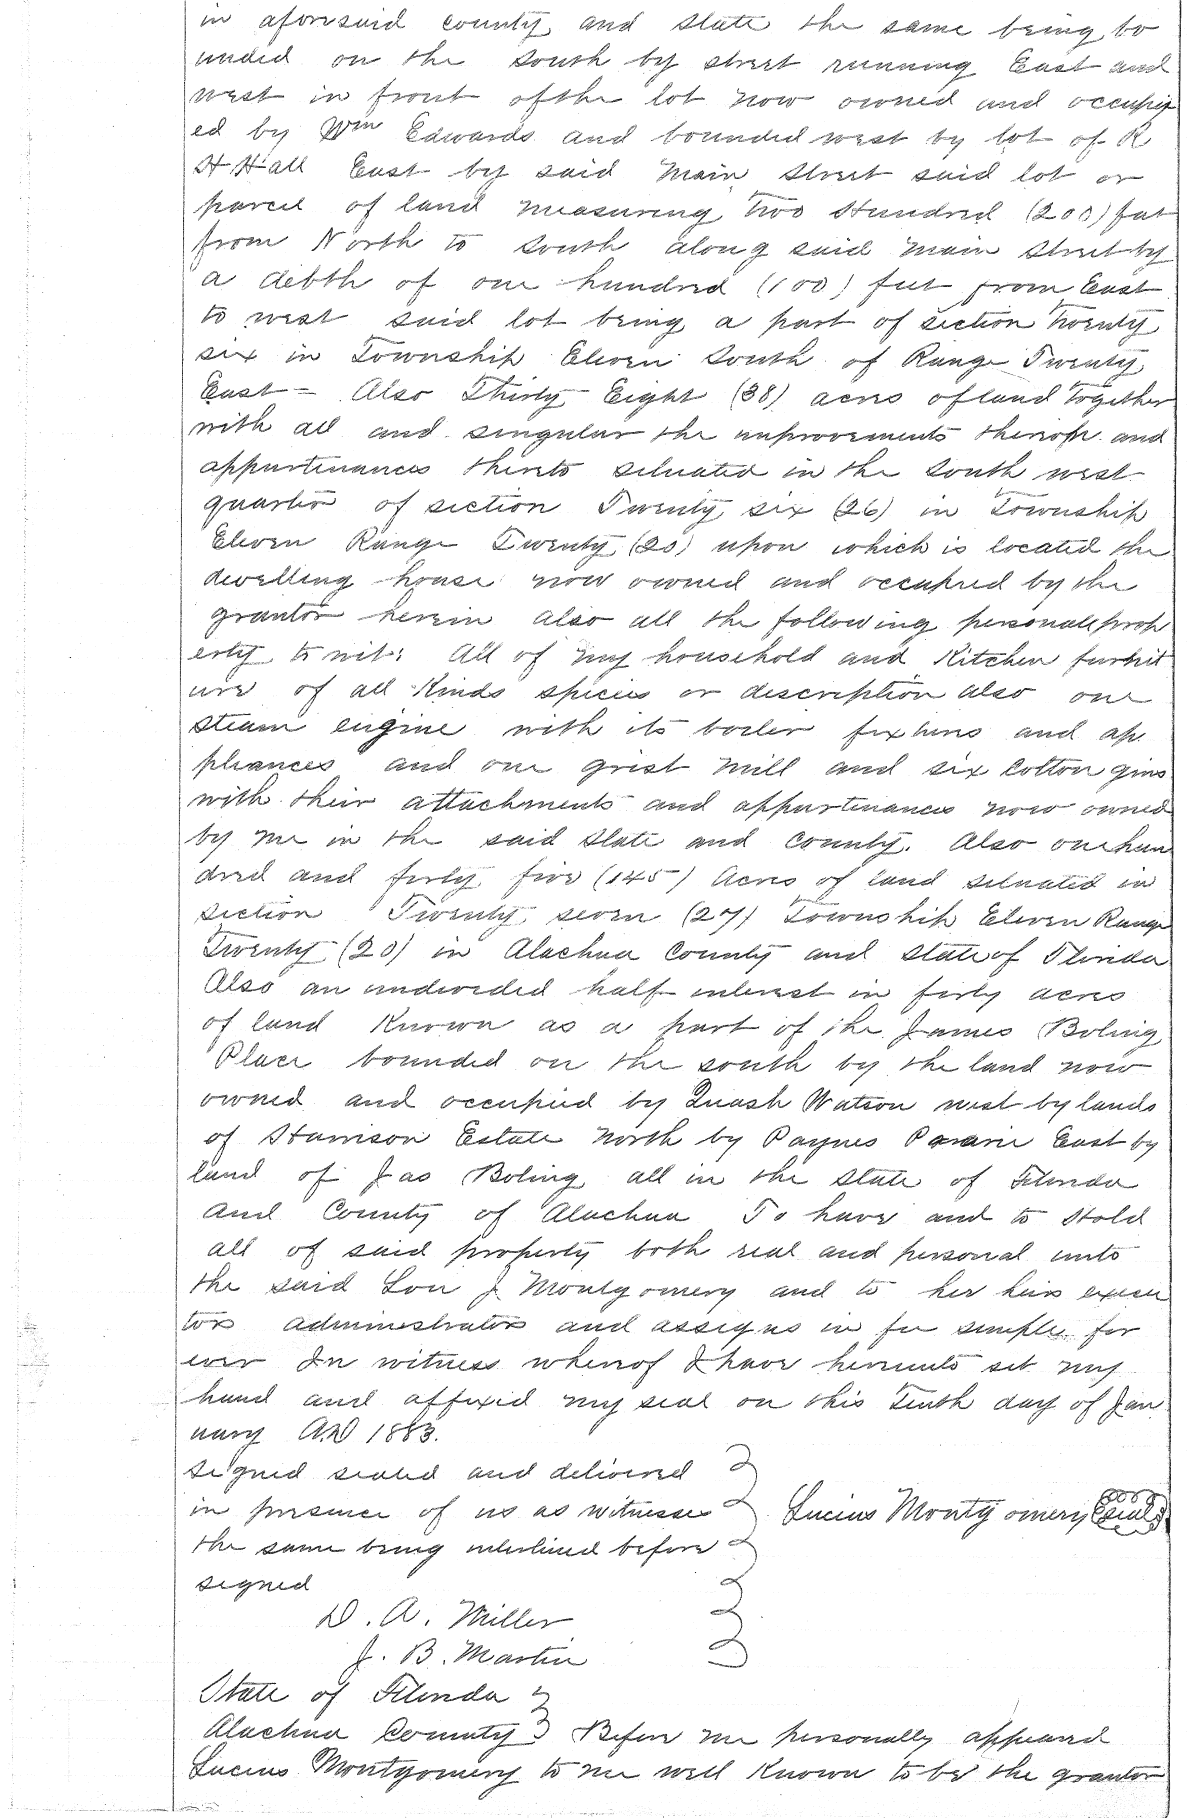 in aforesaid county and State the same being bo
unded on the South by street running East and
west in front of the lot now owned and occupi
ed by Wm Edwards and bounded west by lot of R
H Hall East by said Main Street said lot or
parcel of land measuring Two Hundred (200) feet
from North to South along said Main Street by
a debth of one hundred (100) feet from East
to west said lot being a part of section Twenty
six in Township Eleven South of Range Twenty
East - Also Thirty Eight (38) acres of land Together
with all and singular the improvements thereon and
appurtinances thereto situated in the South west
quarter of section Twenty six (26) in Township
Eleven Range Twenty (20) upon which is located the
dwelling house now owned and occupied by the
grantor herein also all the following personal prop
erty to wit: All of my household and Kitchen furnit
ure of all Kinds species or description also one
steam engine with its boiler fixtures and ap
pliances and one grist mill and six Cotton gins
with their attachments and appurtinances now owned
by me in the said State and County. Also one hun
dred and forty five (145) Acres of land situated in
Section Twenty seven (27) Township Eleven Range
Twenty (20) in Alachua County and State of Florida
Also an undivided half interest in forty acres
of land Known as a part of the James Boling
Place bounded on the south by the land now
owned and occupied by Quash Watson west by lands
of Harrison Estate North by Paynes Prairie East by
land of Jas Boling all in the State of Florida
and County of Alachua To have and to Hold
all of said property both real and personal unto
the said Lou J Montgomery and to her heirs execu
tors administrators and assigns in fee simple for
ever In witness whereof I have hereunto set my
hand and affixed my seal on this Tenth day of Jan
uary AD 1883.
Signed sealed and delivered
in presence of us as witnesses Lucius Montgomery (seal)
the same being interlined before
signed
D. A. Miller
J. B. Martin
State of Florida
Alachua County Before me personally appeared
Lucius Montgomery to me well Known to be the grantor